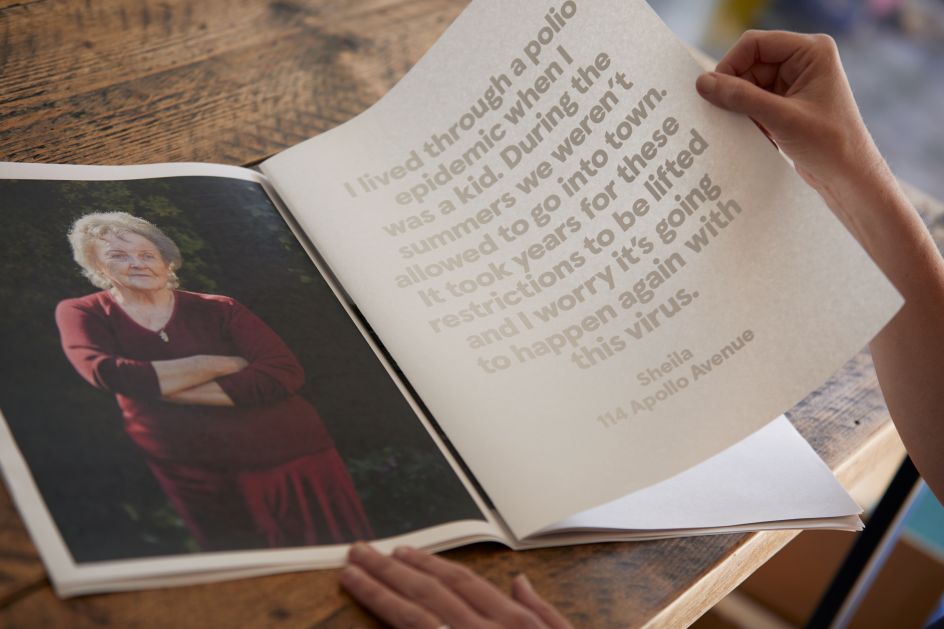 I lived through a polio
epidemic when I
was a kid. During the
summers we weren't
allowed to go into town.
It took years for these
restrictions to be lifted
and I worry it's going
to happen again with
this virus.
Sheila
114 Apollo Avenue